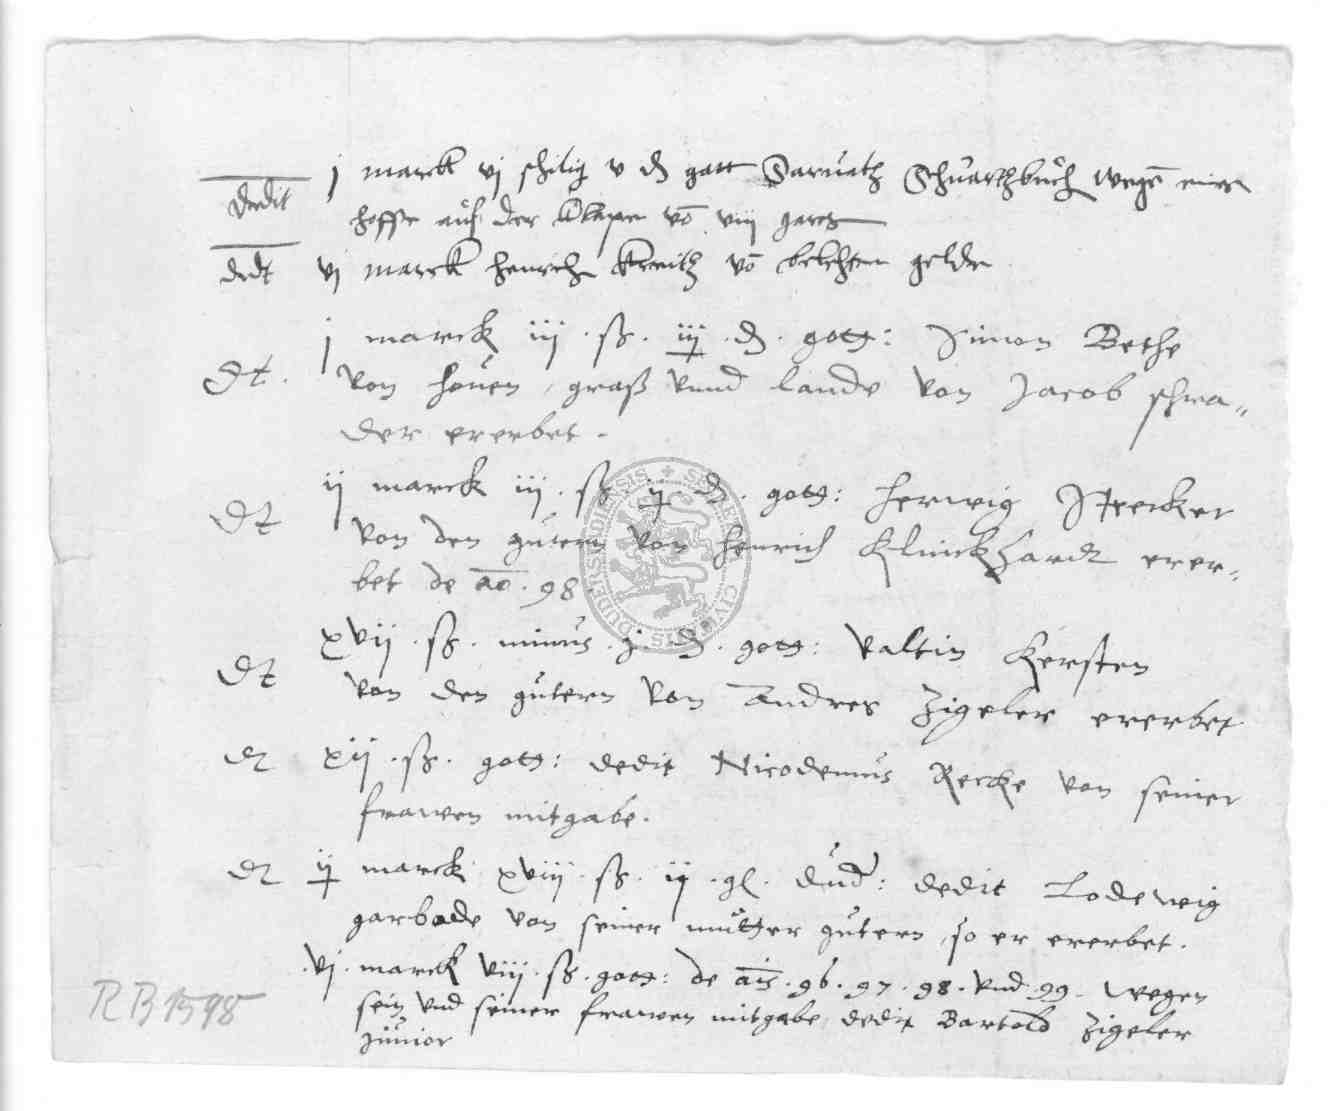 dedit j marck vj schilig v d gott Sarnath Schuarthbuch wegē einer
hoffe auf der Klape vō viij gares
dedt vj marck henrich Kreith vō belehten gelde
j marck iij . sß . iij . d . gott: Simon Bethe
dt. von houen, graß vnnd lande von Jacob schra=
der ererbet.
ij marck iij . sß ij d . gott: herwig Strecker
dt von den gütern von henrich Klinckhardt erer=
bet de ao . 98
xvij . sß . minus . j . d . gott: Valtin Kersten
dt von den gütern von Andres Zigeler ererbet
dt xij . sß . gott: dedit Nicodemus Recke von seiner
frawen mitgabe.
dt ij marck xviij . sß . ij . gl . dud: dedit Lodewig
garbode von seiner mutter gütern, so er ererbet.
.vj. marck viij . sß . gott: de ais . 96 . 97 . 98 . vnd 99 . wegen
sein vnd seiner frawen mitgabe, dedit Bartold Zigeler
junior
RB 1598
SIGILLUM CIVITATIS DUDERSTADENSIS